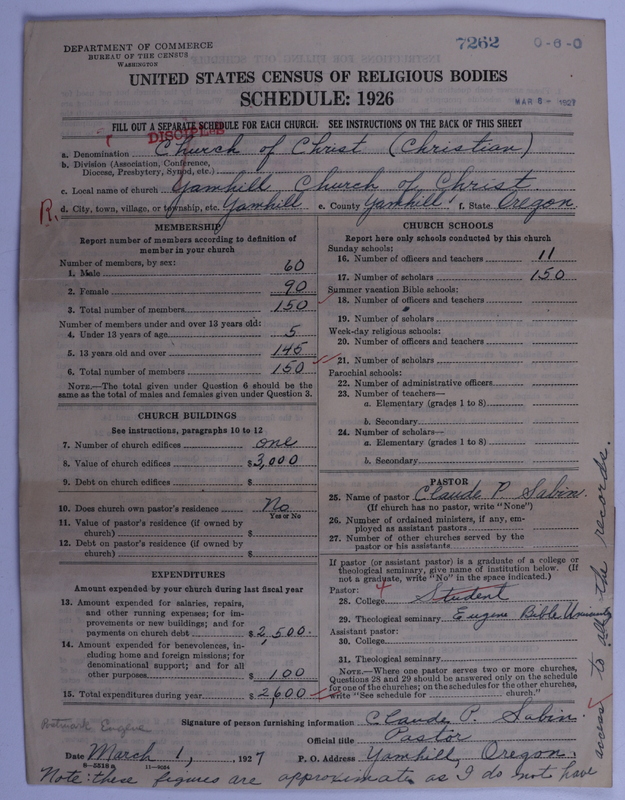 DEPARTMENT OF COMMERCE
BUREAU OF THE CENSUS
WASHINGTON
7262 0-6-0
UNITED STATES CENSUS OF RELIGIOUS BODIES
SCHEDULE: 1926
MAR 8 - 1927
FILL OUT A SEPARATE SCHEDULE FOR EACH CHURCH. SEE INSTRUCTIONS ON THE BACK OF THIS SHEET
DISCIPLE
a. Denomination Church of Christ (Christian)
b. Division (Association, Conference,
Diocese, Presbytery, Synod, etc.)
c. Local name of church Yamhill Church of Christ
R. d. City, town, village, or township, etc. Yamhill e. County Yamhill f. State Oregon.
MEMBERSHIP
Report number of members according to definition of
member in your church
Number of members, by sex:
1. Male 60
2. Female 90
3. Total number of members 150
Number of members under and over 13 years old:
4. Under 13 years of age 5
5. 13 years old and over 145
6. Total number of members 150
NOTE.—The total given under Question 6 should be the
same as the total of males and females given under Question 3.
CHURCH BUILDINGS
See instructions, paragraphs 10 to 12
7. Number of church edifices one
8. Value of church edifices $3,000
9. Debt on church edifices $
10. Does church own pastor's residence No
Yes or No
11. Value of pastor's residence (if owned by
church) $
12. Debt on pastor's residence (if owned by
church) $
EXPENDITURES
Amount expended by your church during last fiscal year
13. Amount expended for salaries, repairs,
and other running expenses; for im-
provements or new buildings; and for
payments on church debt $2,500.
14. Amount expended for benevolences, in-
cluding home and foreign missions; for
denominational support; and for all
other purposes $100
15. Total expenditures during year $2600
CHURCH SCHOOLS
Report here only schools conducted by this church
Sunday schools:
16. Number of officers and teachers 11
17. Number of scholars 150
Summer vacation Bible schools:
18. Number of officers and teachers
19. Number of scholars
Week-day religious schools:
20. Number of officers and teachers
21. Number of scholars
Parochial schools:
22. Number of administrative officers
23. Number of teachers—
a. Elementary (grades 1 to 8)
b. Secondary
24. Number of scholars—
a. Elementary (grades 1 to 8)
b. Secondary
PASTOR
25. Name of pastor Claude P. Sabin.
(If church has no pastor, write "None")
26. Number of ordained ministers, if any, em-
ployed as assistant pastors
27. Number of other churches served by the
pastor or his assistants
If pastor (or assistant pastor) is a graduate of a college or
theological seminary, give name of institution below. (If
not a graduate, write "No" in the space indicated.)
Pastor: 4
28. College Student
29. Theological seminary Eugene Bible University
Assistant pastor:
30. College
31. Theological seminary
NOTE.—Where one pastor serves two or more churches,
Questions 28 and 29 should be answered only on the schedule
for one of the churches; on the schedules for the other churches,
write "See schedule for church."
Postmark Eugene
Signature of person furnishing information Claude P. Sabin.
Official title Pastor
Date March 1, 1927 P. O. Address Yamhill, Oregon.
Note: these figures are approximate as I do not have
access to all the records.